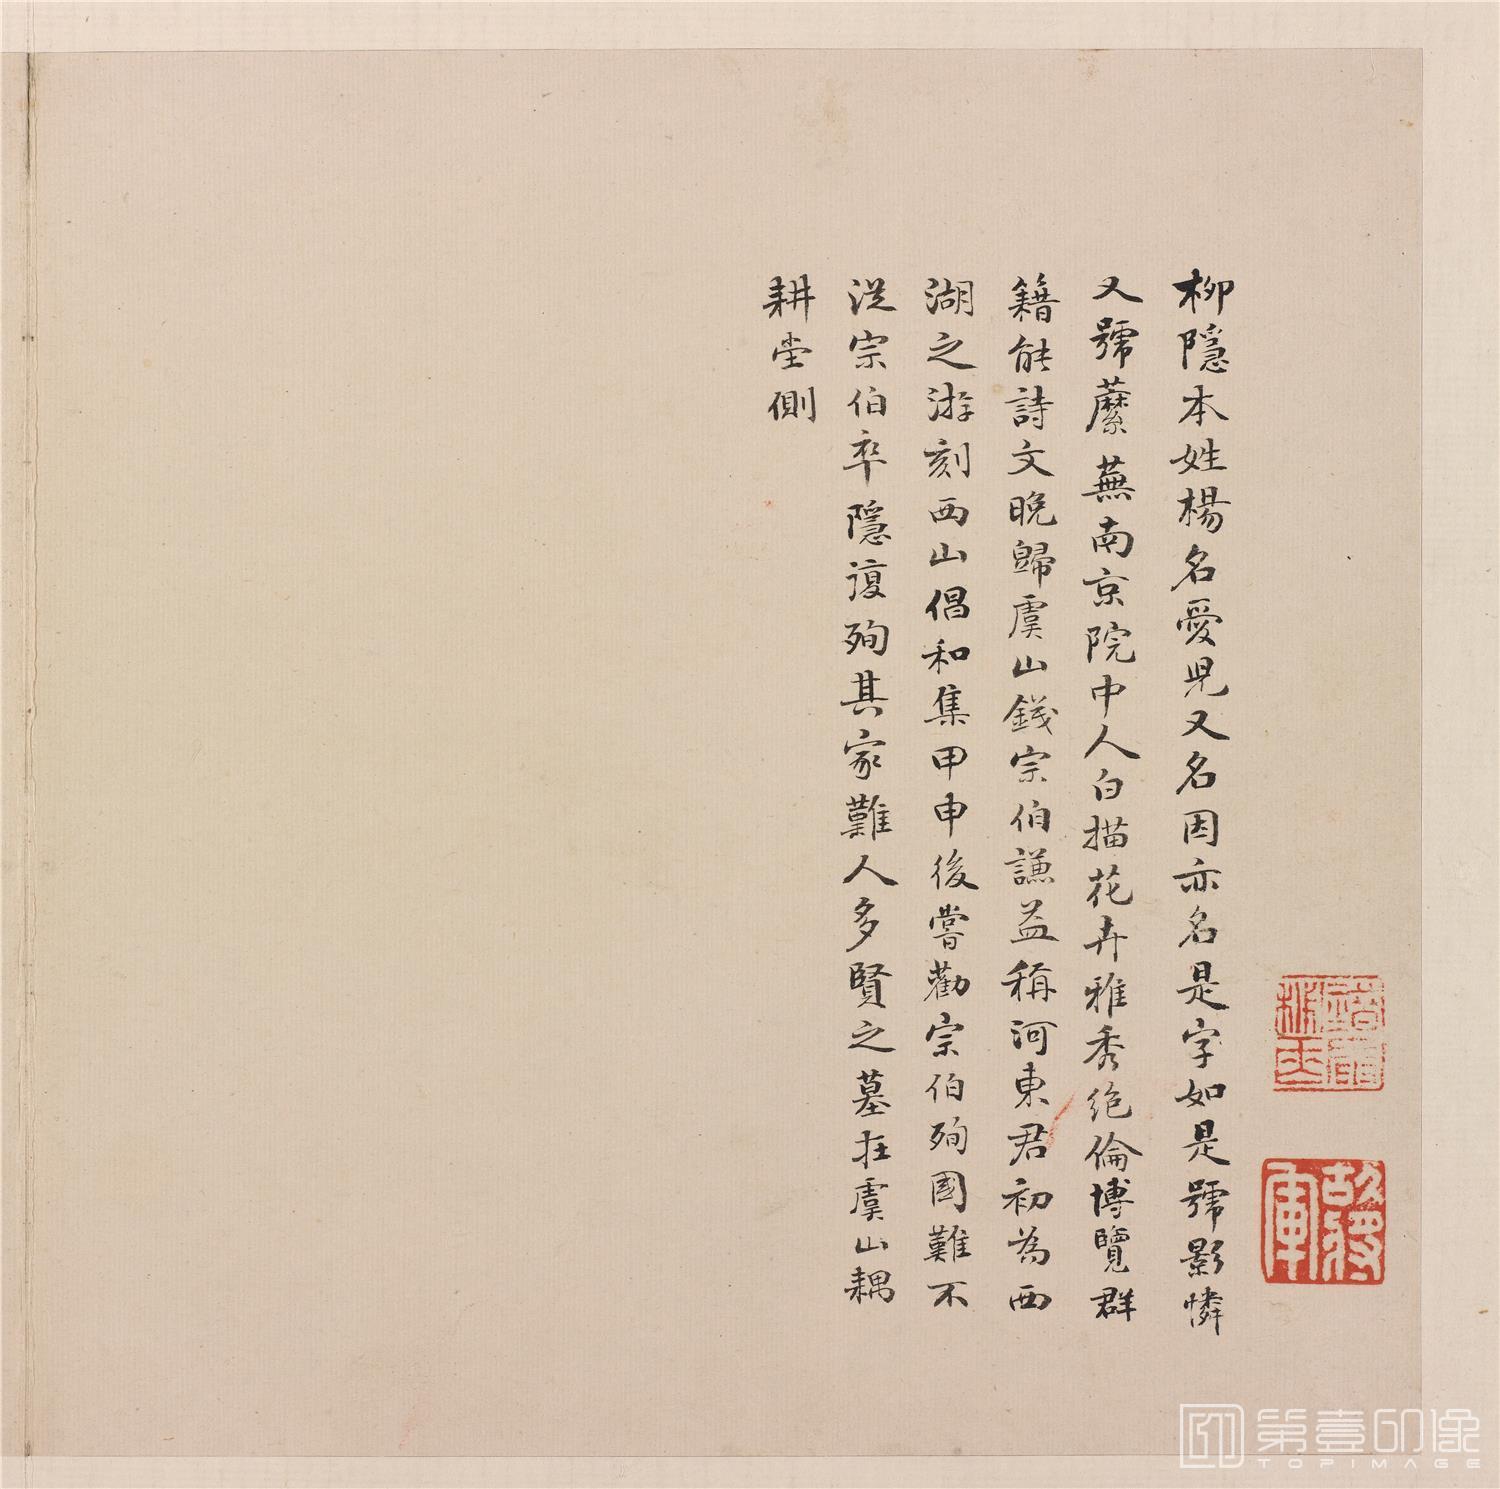 柳隱本姓楊名愛兒又名因亦名是字如是號影憐
又號蘼蕪南京院中人白描花卉雅秀絶倫博覽群
籍能詩文晚歸虞山錢宗伯謙益稱河東君初為西
湖之游刻西山倡和集甲申後嘗勸宗伯殉國難不
從宗伯卒隱復殉其家難人多賢之墓在虞山耦
耕堂側
故將軍
第壹印像
TOPIMAGE